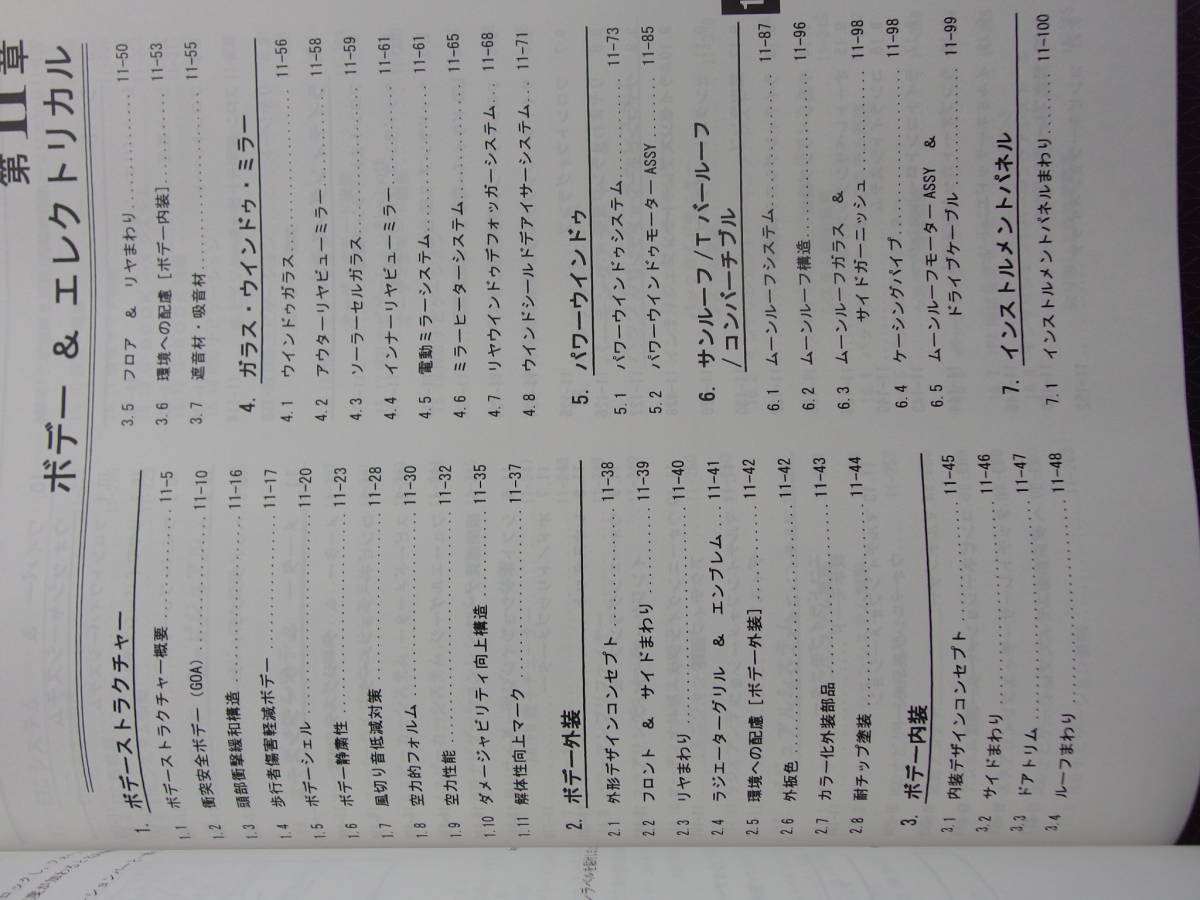 第11章
ボデー & エレクトリカル
1. ボデーストラクチャー
1.1 ボデーストラクチャー概要 11-5
1.2 衝突安全ボデー(GOA) 11-10
1.3 頭部衝撃緩和構造 11-16
1.4 歩行者傷害軽減ボデー 11-17
1.5 ボデーシェル 11-20
1.6 ボデー静粛性 11-23
1.7 風切り音低減対策 11-28
1.8 空力的フォルム 11-30
1.9 空力性能 11-32
1.10 ダメージャビリティ向上構造 11-35
1.11 解体性向上マーク 11-37
2. ボデー外装
2.1 外形デザインコンセプト 11-38
2.2 フロント & サイドまわり 11-39
2.3 リヤまわり 11-40
2.4 ラジエーターグリル & エンブレム 11-41
2.5 環境への配慮[ボデー外装] 11-42
2.6 外板色 11-42
2.7 カラー化外装部品 11-43
2.8 耐チップ塗装 11-44
3. ボデー内装
3.1 内装デザインコンセプト 11-45
3.2 サイドまわり 11-46
3.3 ドアトリム 11-47
3.4 ルーフまわり 11-48
3.5 フロア & リヤまわり 11-50
3.6 環境への配慮[ボデー内装] 11-53
3.7 遮音材・吸音材 11-55
4. ガラス・ウインドゥ・ミラー
4.1 ウインドゥガラス 11-56
4.2 アウターリヤビューミラー 11-58
4.3 ソーラーセルガラス 11-59
4.4 インナーリヤビューミラー 11-61
4.5 電動ミラーシステム 11-61
4.6 ミラーヒーターシステム 11-65
4.7 リヤウインドゥデフォッガーシステム 11-68
4.8 ウインドシールドデアイサーシステム 11-71
5. パワーウインドゥ
5.1 パワーウインドゥシステム 11-73
5.2 パワーウインドゥモーターASSY 11-85
6. サンルーフ/Tバールーフ
/コンバーチブル
6.1 ムーンルーフシステム 11-87
6.2 ムーンルーフ構造 11-96
6.3 ムーンルーフガラス &
サイドガーニッシュ 11-98
6.4 ケーシングパイプ 11-98
6.5 ムーンルーフモーターASSY &
ドライブケーブル 11-99
7. インストルメントパネル
7.1 インストルメントパネルまわり 11-100